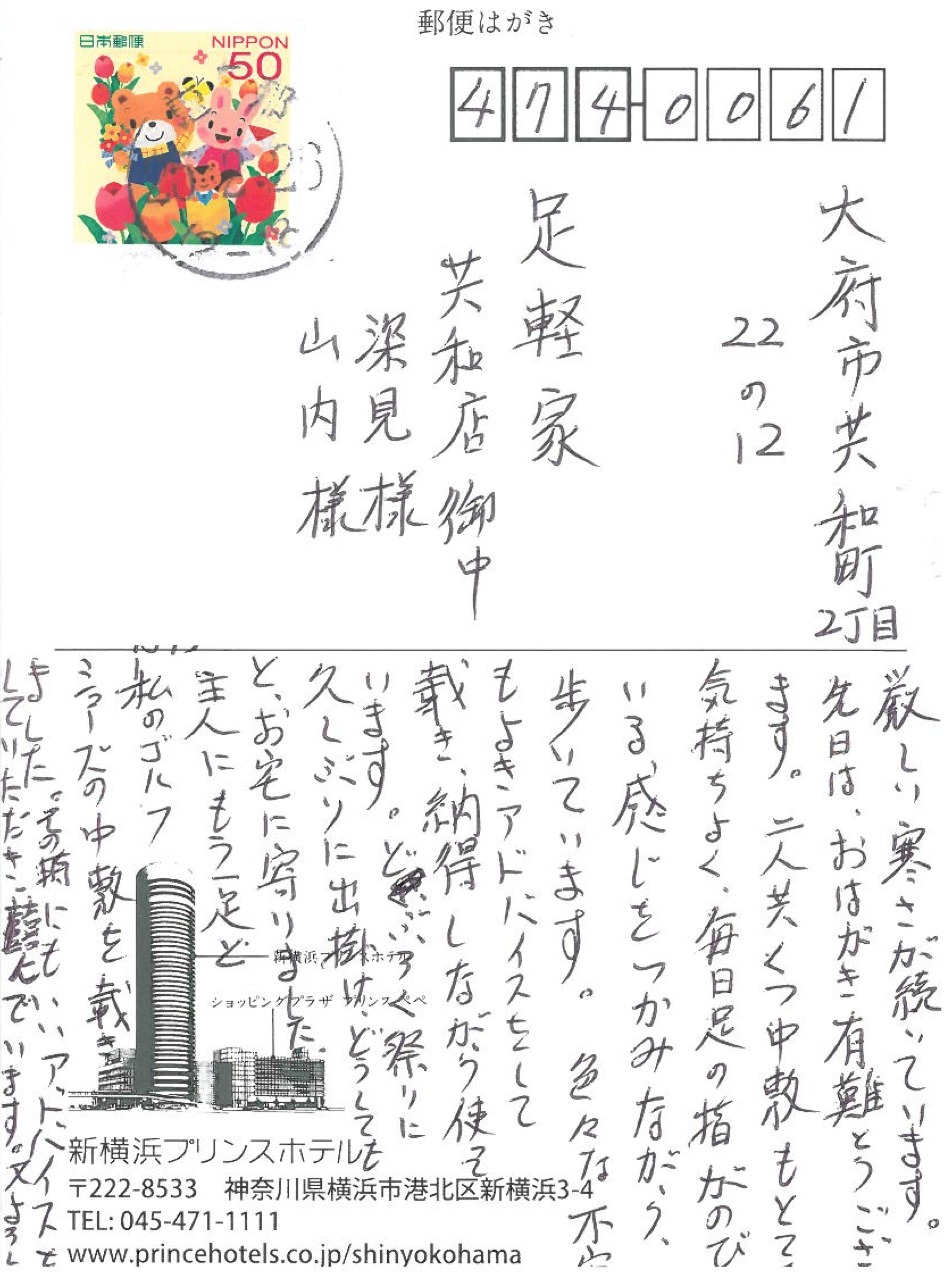 郵便はがき
日本郵便
NIPPON
50
474-0061
大府市共和町2丁目
22の12
足軽家
共和店 御中
深見様
山内様
厳しい寒さが続いています。
先日は、おはがき有難とうござ
ます。二人共くつ中敷もとて
気持ちよく、毎日足の指がのび
いる、感じをつかみながら、
歩いています。色々な不安
もよきアドバイスをして
載き、納得しながら使って
います。どぶろく祭りに
久しぶりに出掛け、どうしても
と、お宅に寄りました。
主人にもう一足と
私のゴルフ
シューズの中敷を載き
ました。その頃にもいいアドバイスを
していただき喜んでいます。又よろし
新横浜プリンスホテル
ショッピングプラザ プリンスペペ
新横浜プリンスホテル
〒222-8533 神奈川県横浜市港北区新横浜3-4
TEL: 045-471-1111
www.princehotels.co.jp/shinyokohama